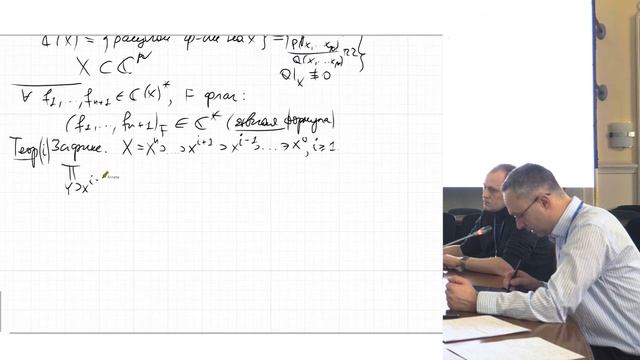 ℂ(X) = { рацион. ф-ии на X } = { P(x₁,…x_N) / Q(x₁,…x_N)
X ⊂ ℂᴺ Q|_X ≢ 0
∀ f₁,…,fₙ₊₁ ∈ ℂ(X)*, F флаг:
(f₁,…,fₙ₊₁)_F ∈ ℂ* (явная формула)
Теор(i) Зафикс. X = Xⁿ ⊃…⊃ Xⁱ⁺¹ ⊃ Xⁱ⁻¹ ⊃…⊃ X⁰, i≥1
∏
Y ⊃ Xⁱ⁻